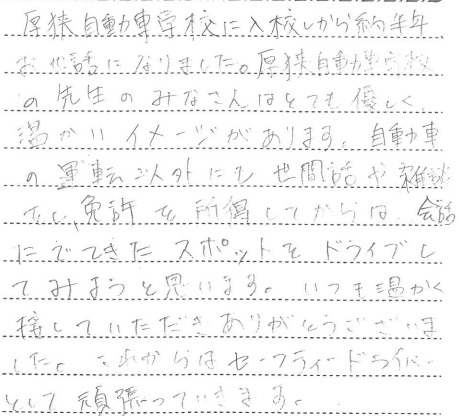 厚狭自動車学校に入校しから約半年
お世話になりました。厚狭自動車学校
の先生のみなさんはとても優しく、
温かいイメージがあります。自動車
の運転以外にも世間話や雑談
をし、免許を所得してからは、会話
にでてきたスポットをドライブし
てみようと思います。いつも温かく
接していただきありがとうございま
した。これからはセーフティードライバー
として頑張っていきます。